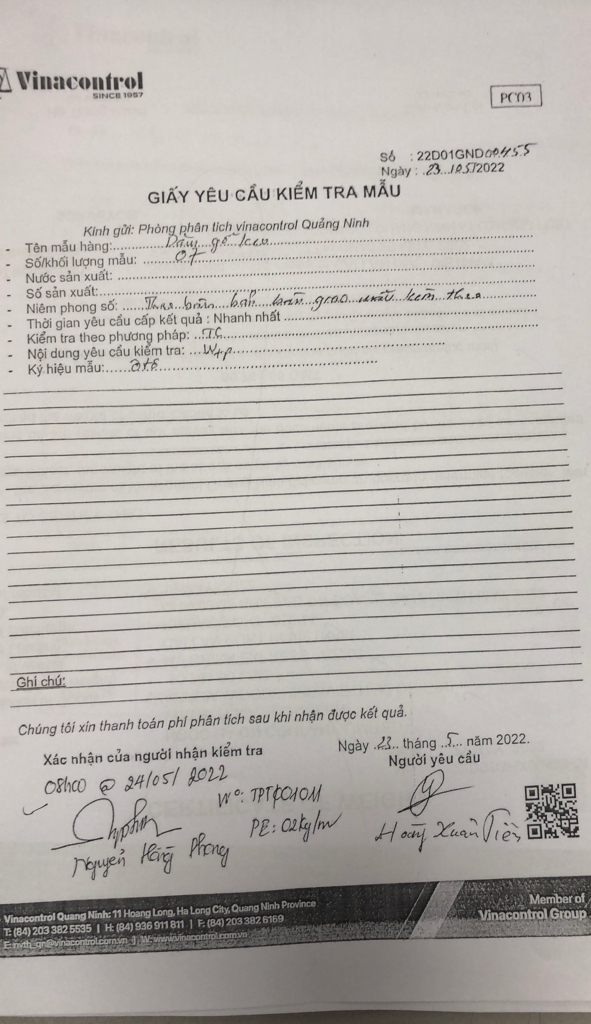 Vinacontrol
SINCE 1957
PCT/3
Số : 22D01GND00455
Ngày : 23/05/2022
GIẤY YÊU CẦU KIỂM TRA MẪU
Kính gửi: Phòng phân tích vinacontrol Quảng Ninh
- Tên mẫu hàng: Dăm gỗ keo
- Số/khối lượng mẫu: 07
- Nước sản xuất:
- Số sản xuất:
- Niêm phong số: Theo biên bản bàn giao mẫu kèm theo
- Thời gian yêu cầu cấp kết quả : Nhanh nhất
- Kiểm tra theo phương pháp: TC
- Nội dung yêu cầu kiểm tra: Wtp
- Ký hiệu mẫu:
Ghi chú:
Chúng tôi xin thanh toán phí phân tích sau khi nhận được kết quả.
Ngày 23 tháng 5 năm 2022.
Xác nhận của người nhận kiểm tra
Người yêu cầu
08h00 @ 24/05/2022
Nº: TPTK01011
PE: 02kg/m
Nguyễn Hồng Phong
Hoàng Xuân Tiến
Vinacontrol Quang Ninh: 11 Hoang Long, Ha Long City, Quang Ninh Province
T: (84) 203 382 5535 | H: (84) 936 911 811 | F: (84) 203 382 6169
E: nvth_qn@vinacontrol.com.vn | W: www.vinacontrol.com.vn
Member of
Vinacontrol Group